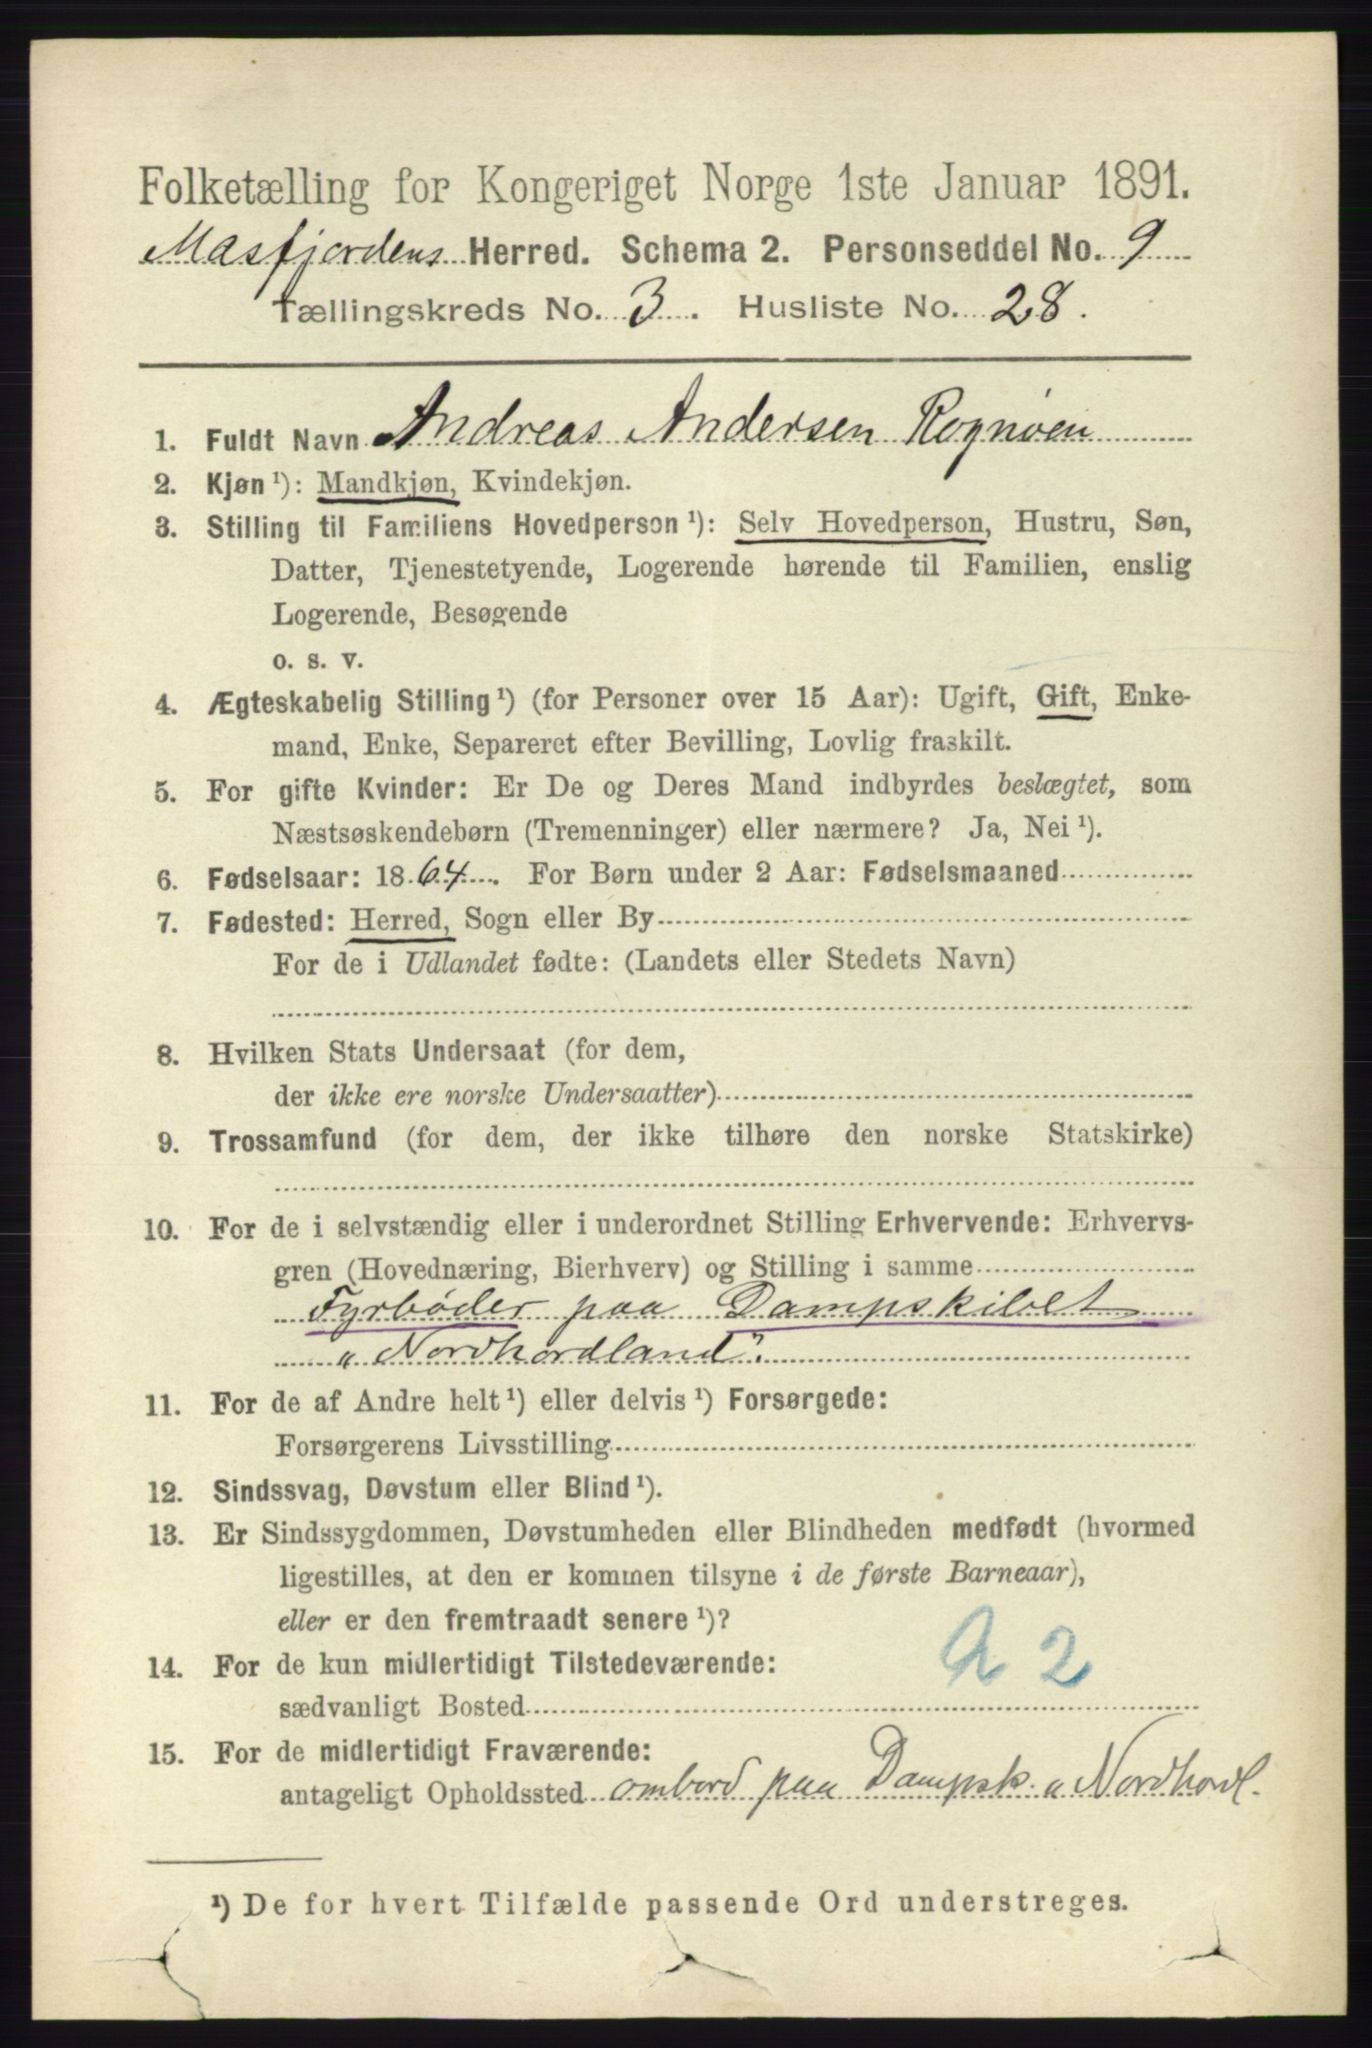 Folketælling for Kongeriget Norge 1ste Januar 1891.
Masfjordens Herred. Schema 2. Personseddel No. 9
Tællingskreds No. 3. Husliste No. 28.
1. Fuldt Navn Andreas Andersen Rognøen
2. Kjøn ¹): Mandkjøn, Kvindekjøn.
3. Stilling til Familiens Hovedperson ¹): Selv Hovedperson, Hustru, Søn,
Datter, Tjenestetyende, Logerende hørende til Familien, enslig
Logerende, Besøgende
o. s. v.
4. Ægteskabelig Stilling ¹) (for Personer over 15 Aar): Ugift, Gift, Enke-
mand, Enke, Separeret efter Bevilling, Lovlig fraskilt.
5. For gifte Kvinder: Er De og Deres Mand indbyrdes beslægtet, som
Næstsøskendebørn (Tremenninger) eller nærmere? Ja, Nei ¹).
6. Fødselsaar: 1864. For Børn under 2 Aar: Fødselsmaaned
7. Fødested: Herred, Sogn eller By
For de i Udlandet fødte: (Landets eller Stedets Navn)
8. Hvilken Stats Undersaat (for dem,
der ikke ere norske Undersaatter)
9. Trossamfund (for dem, der ikke tilhøre den norske Statskirke)
10. For de i selvstændig eller i underordnet Stilling Erhvervende: Erhvervs-
gren (Hovednæring, Bierhverv) og Stilling i samme
Fyrbøder paa Dampskibet
„Nordhordland".
11. For de af Andre helt ¹) eller delvis ¹) Forsørgede:
Forsørgerens Livsstilling
12. Sindssvag, Døvstum eller Blind ¹).
13. Er Sindssygdommen, Døvstumheden eller Blindheden medfødt (hvormed
ligestilles, at den er kommen tilsyne i de første Barneaar),
eller er den fremtraadt senere ¹)?
a 2
14. For de kun midlertidigt Tilstedeværende:
sædvanligt Bosted
15. For de midlertidigt Fraværende:
antageligt Opholdssted ombord paa Dampsk. „Nordhordl.
¹) De for hvert Tilfælde passende Ord understreges.